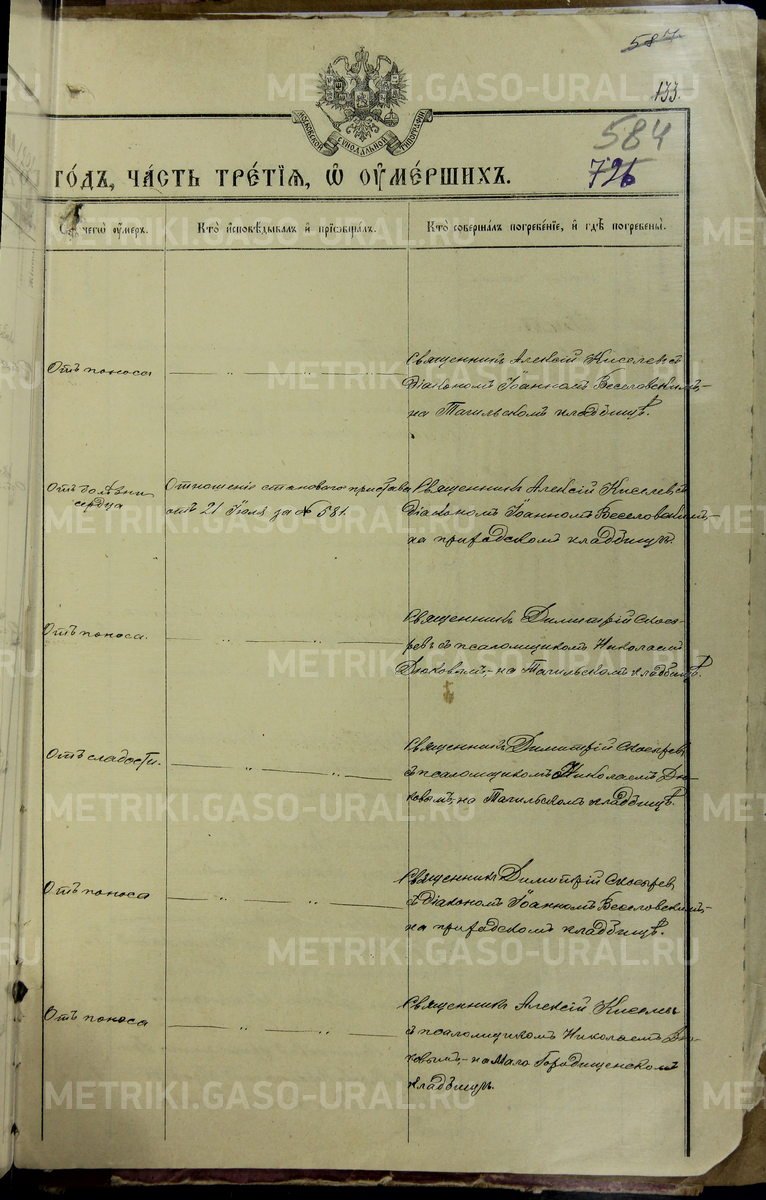 587
133.
584
726
МОСКОВСКОЙ СѴНОДАЛЬНОЙ ТИПОГРАФІИ
го́дъ, ча́сть тре́тїѧ, ѡ҆ ᲂу҆ме́ршихъ.
Ѿ чегѡ̀ ᲂу҆́меръ.
Кто̀ и҆сповѣ́дывалъ и҆ прїѡбща́лъ.
Кто̀ соверша́лъ погребе́нїе, и҆ гдѣ̀ погребены̀.
Отъ поноса
Священникъ Алексій Киселевъ съ
Діакономъ Іоанномъ Веселовскимъ,-
на Тагильскомъ кладбищѣ.
Отъ болѣзни
сердца
Отношеніе становаго пристава
отъ 21 Іюля за № 581.
Священникъ Алексій Киселевъ съ
Діакономъ Іоанномъ Веселовскимъ,-
на приходскомъ кладбищѣ.
Отъ поноса.
Священникъ Димитрій Скосы-
ревъ съ псаломщикомъ Николаемъ
Дюковымъ,- на Тагильскомъ кладбищѣ.
Отъ слабости.
Священникъ Димитрій Скосыревъ
съ псаломщикомъ Николаемъ Дю-
ковымъ, на Тагильскомъ кладбищѣ.
Отъ поноса
Священникъ Димитрій Скосырев
съ Діакономъ Іоанномъ Веселовскимъ,-
на приходскомъ кладбищѣ.
Отъ поноса
Священникъ Алексій Киселевъ
съ псаломщикомъ Николаемъ Дю-
ковымъ,- на Мало Городищенскомъ
кладбищѣ.
METRIKI.GASO-URAL.RU